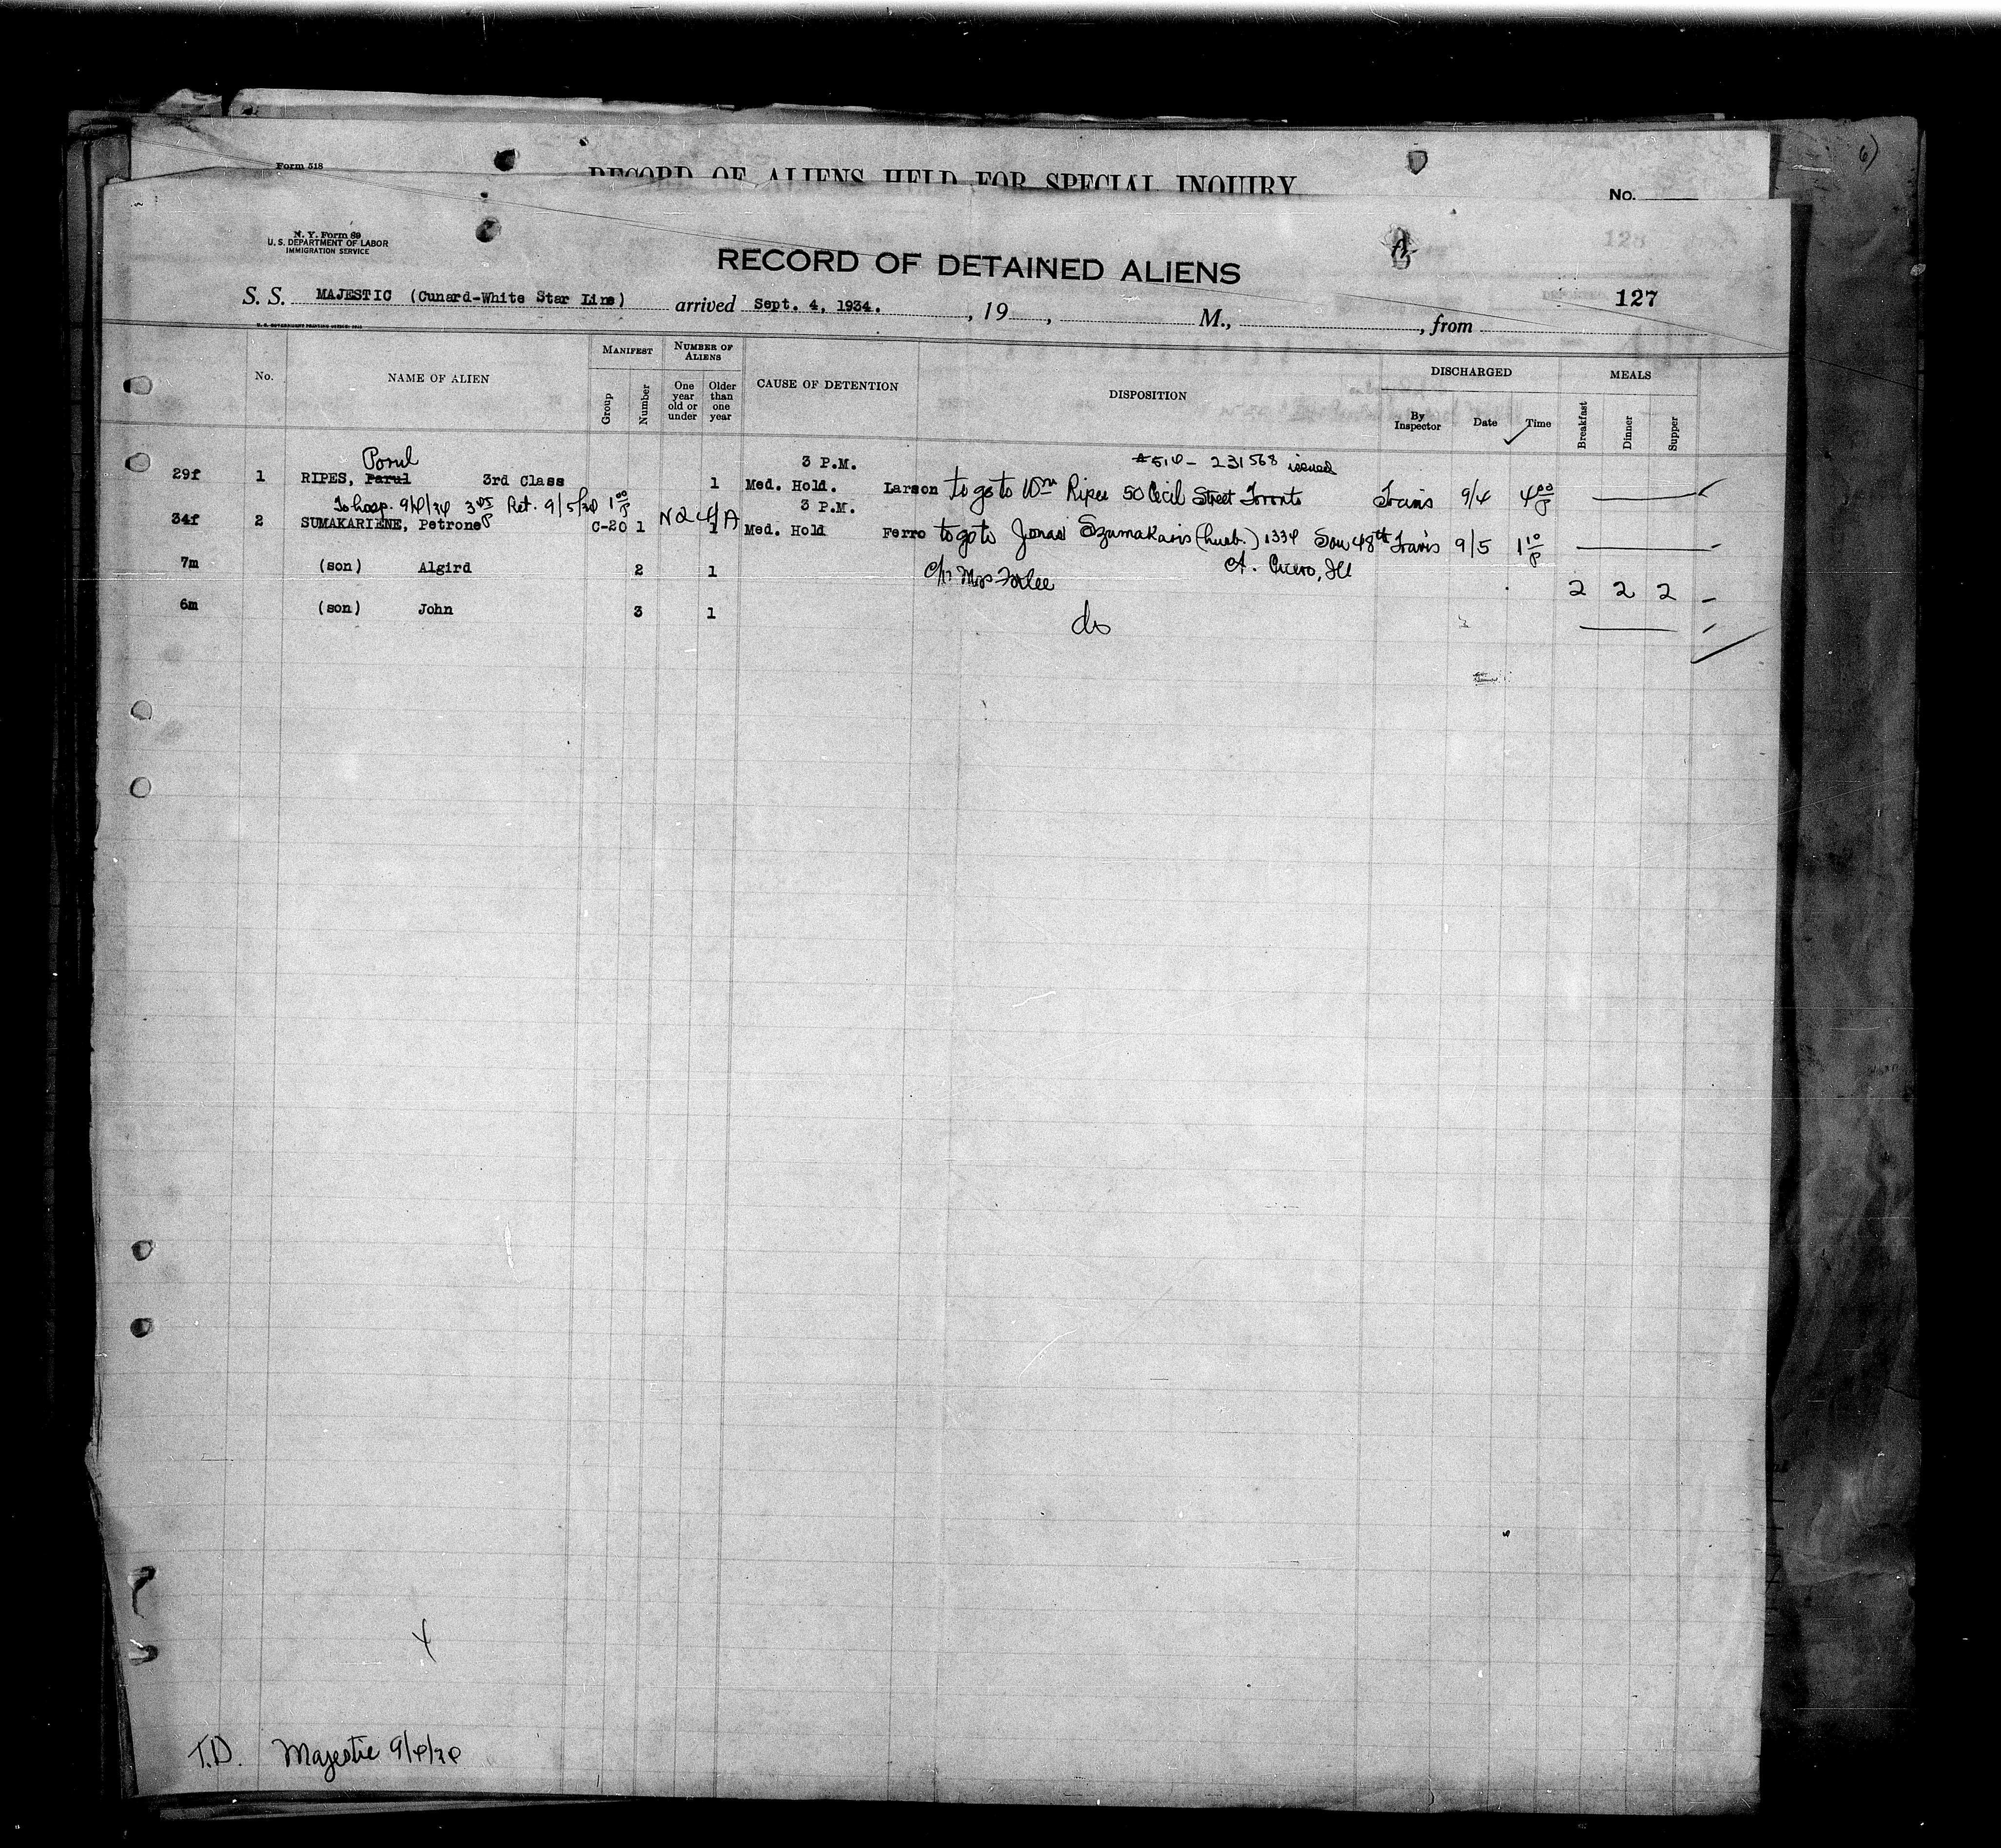 6)
Form 518
RECORD OF ALIENS HELD FOR SPECIAL INQUIRY
No.
N. Y. Form 89
U. S. DEPARTMENT OF LABOR
IMMIGRATION SERVICE
128
RECORD OF DETAINED ALIENS
S. S. MAJESTIC (Cunard-White Star Line) arrived Sept. 4, 1934. , 19 , M., , from
127
No. NAME OF ALIEN MANIFEST Group Number NUMBER OF ALIENS One year old or under Older than one year CAUSE OF DETENTION DISPOSITION DISCHARGED By Inspector Date Time MEALS Breakfast Dinner Supper
Porul 3 P.M. #514 - 231568 issued
29f 1 RIPES, Parul 3rd Class 1 Med. Hold. Larson to go to Wm Ripes 50 Cecil Street Toronto Travis 9/4 4 00 P
To hosp. 9/4/34 3 05 P Ret. 9/5/34 1 00 P 3 P.M.
34f 2 SUMAKARIENE, Petrone C-20 1 N24/A 1 Med. Hold Ferro to go to Jonas Szumakaris (husb.) 1334 Sou 48th Travis 9/5 1 10 P
Ct. Cicero, Ill
7m (son) Algird 2 1 c/n Mrs 2 2 2
6m (son) John 3 1 do
T.D. Majestic 9/4/34